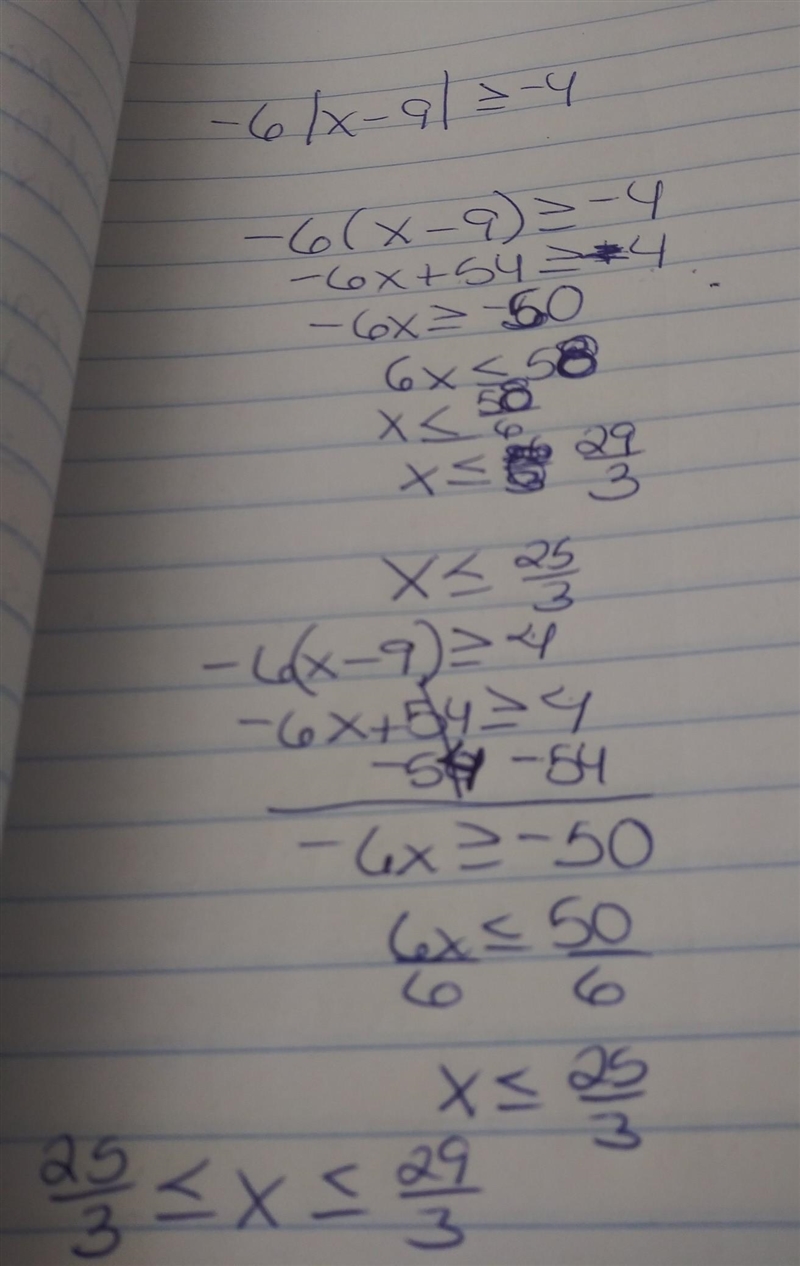 -6|x-9| ≥ -4
-6(x-9) ≥ -4
-6x+54 ≥ 4
-6x ≥ -50
6x ≤ 58
x ≤ 58/6
x ≤ 29/3
x ≤ 25/3
-6(x-9) ≥ 4
-6x+54 ≥ 4
-54 -54
-6x ≥ -50
6x/6 ≤ 50/6
x ≤ 25/3
25/3 ≤ x ≤ 29/3